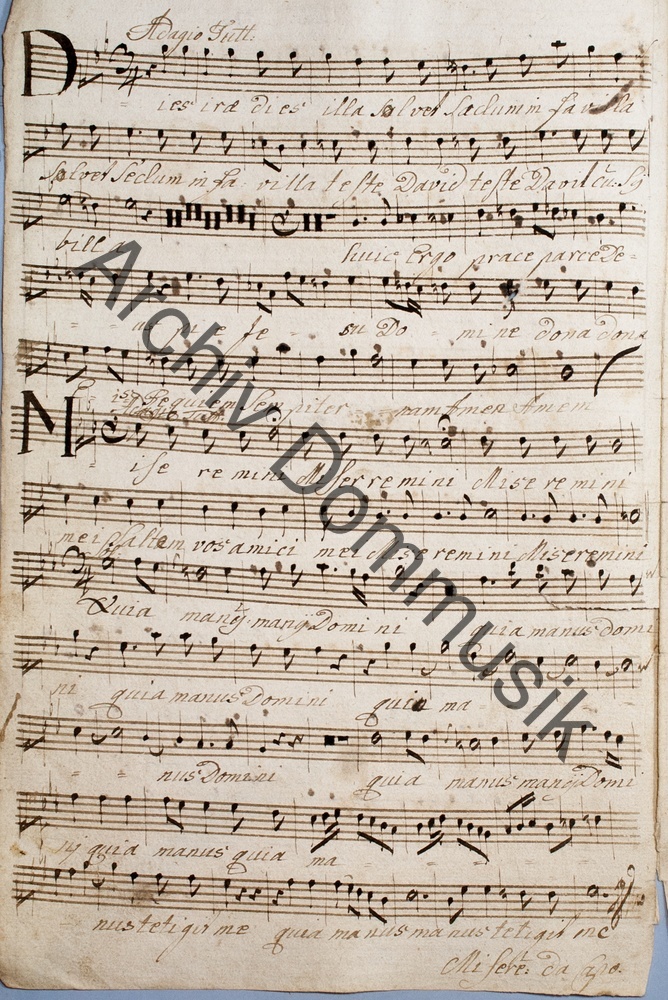 Adagio Tutt:
Dies iræ dies illa solvet sæclum in favilla
solvet Seclum in fa villa teste David teste David cũ Sy
billa huic Ergo prace parce De=
us pie Je su Do mine dona dona
Requiem Sempiter nam Amen Amem
Mise remini Miserremini Miseremini
mei saltem vos amici mei Miseremini Miseremini
Quia manus manus Domini quia manus Domi
ni quia manus Domini quia ma
nus Domini quia manus manus Domi
ni quia manus quia ma
nus tetigit me quia manus manus tetigit me
Misere: da Capo.
Archiv Dommusik